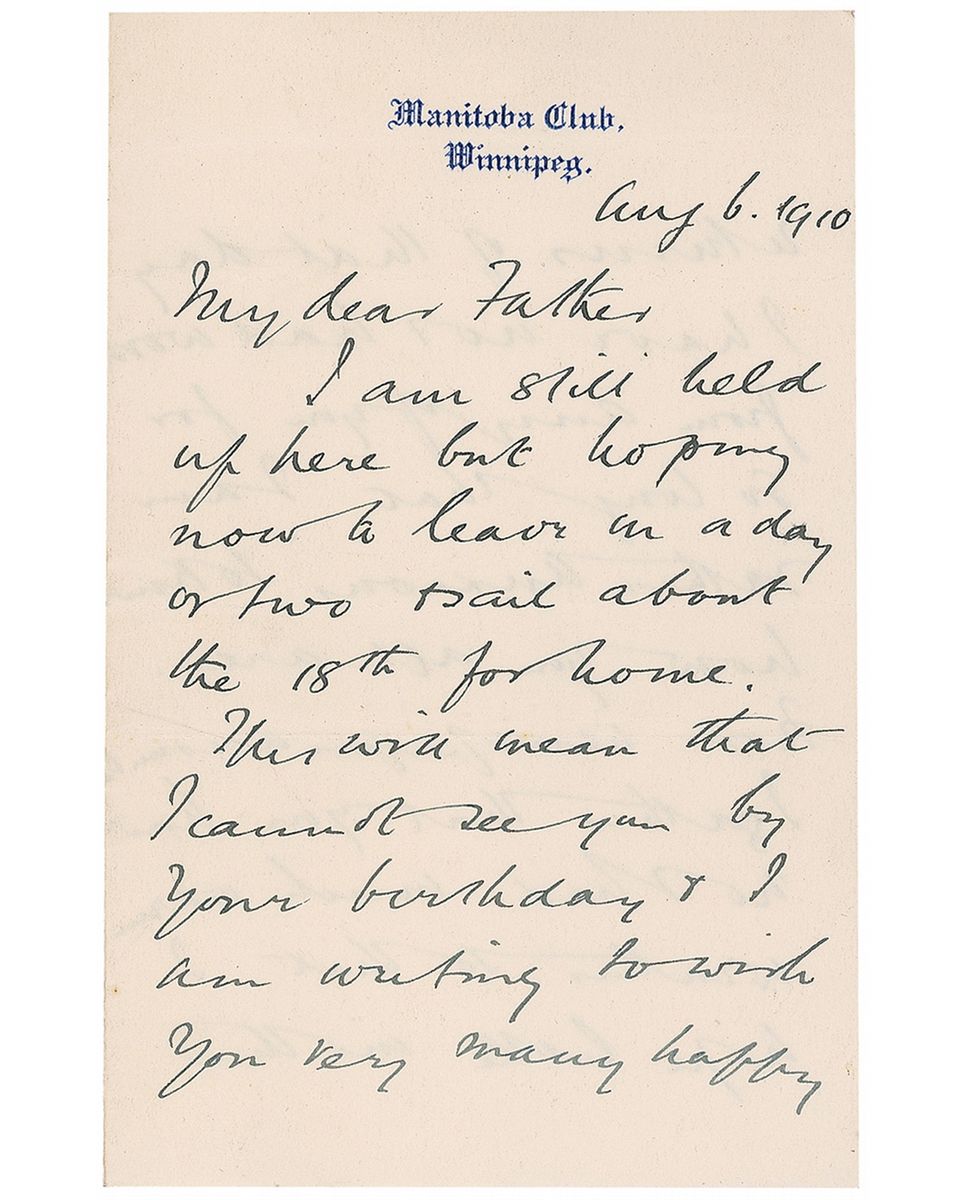 Manitoba Club,
Winnipeg.
Aug 6. 1910
My dear Father
I am still held
up here but hoping
now to leave in a day
or two & sail about
the 18th for home.
This will mean that
I cannot see you by
your birthday & I
am writing to wish
you very many happy